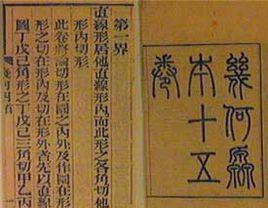 幾何原
本十五
卷
第一界
直線形居他直線形內而此形之各角切他
形內切形
此卷將論切形在圜之內外及作圜在形
形之切在形內及切在形外者先以直線
圖丁戊己角形之丁戊己三角切甲乙丙